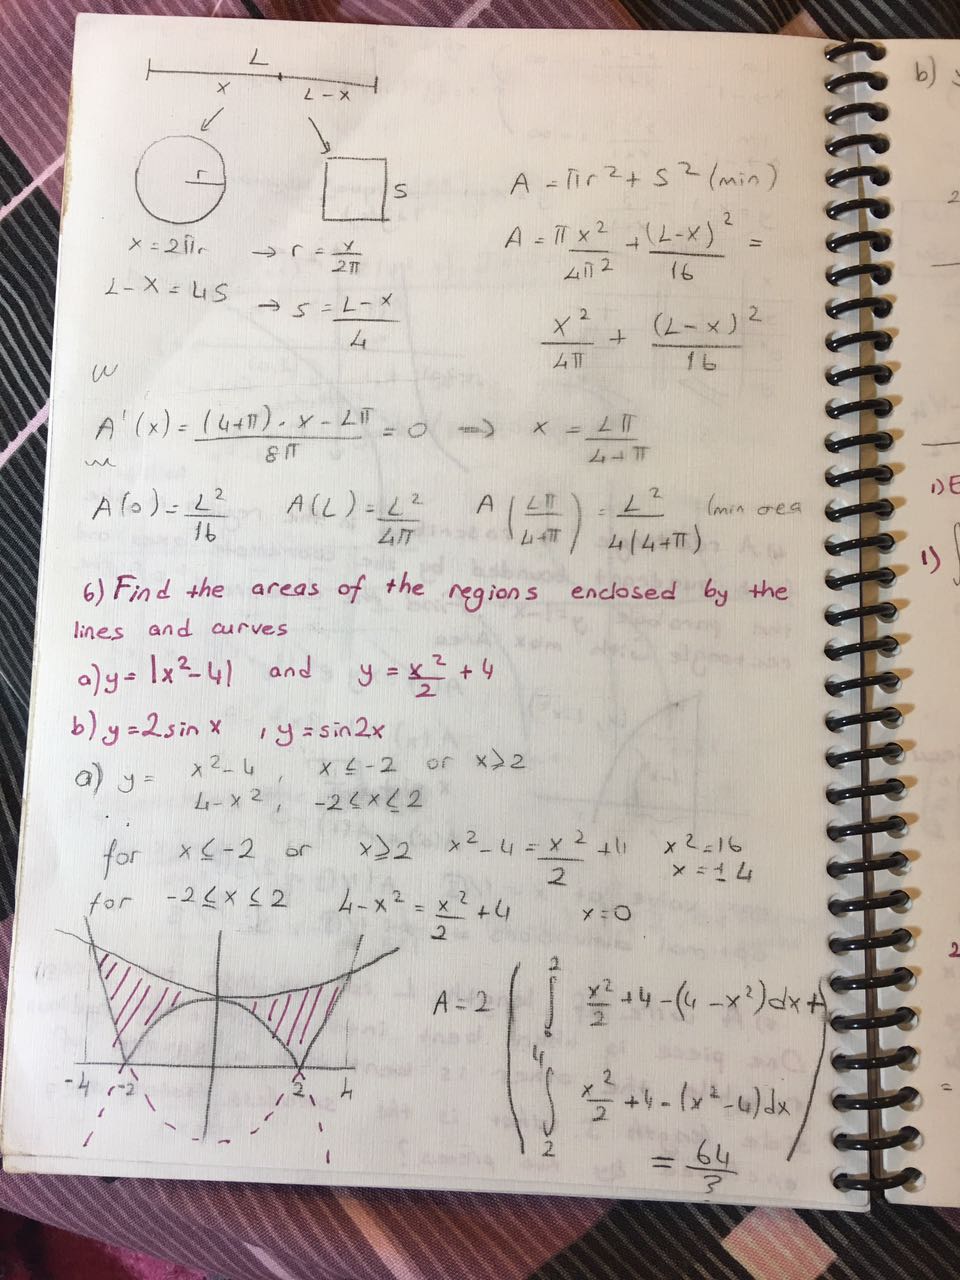 L
x L-x
r s
x = 2πr → r = x/2π
L-x = 4s → s = (L-x)/4
A = πr² + s² (min)
A = π x²/4π² + (L-x)²/16 =
x²/4π + (L-x)²/16
A'(x) = ((4+π)·x - Lπ)/8π = 0 ⇒ x = Lπ/(4+π)
A(0) = L²/16 A(L) = L²/4π A(Lπ/(4+π)) = L²/4(4+π) (min area
6) Find the areas of the regions enclosed by the
lines and curves
a) y = |x²-4| and y = x²/2 + 4
b) y = 2sin x , y = sin2x
a) y = x²-4 , x ≤ -2 or x ≥ 2
4-x² , -2 ≤ x ≤ 2
for x ≤ -2 or x ≥ 2 x²-4 = x²/2 + 4 x² = 16
x = ± 4
for -2 ≤ x ≤ 2 4-x² = x²/2 + 4 x = 0
-4 -2 2 4
A = 2 ( ∫₀² x²/2 + 4 - (4-x²)dx +
∫₂⁴ x²/2 + 4 - (x²-4)dx )
= 64/3
b)
1)
1)
2
=